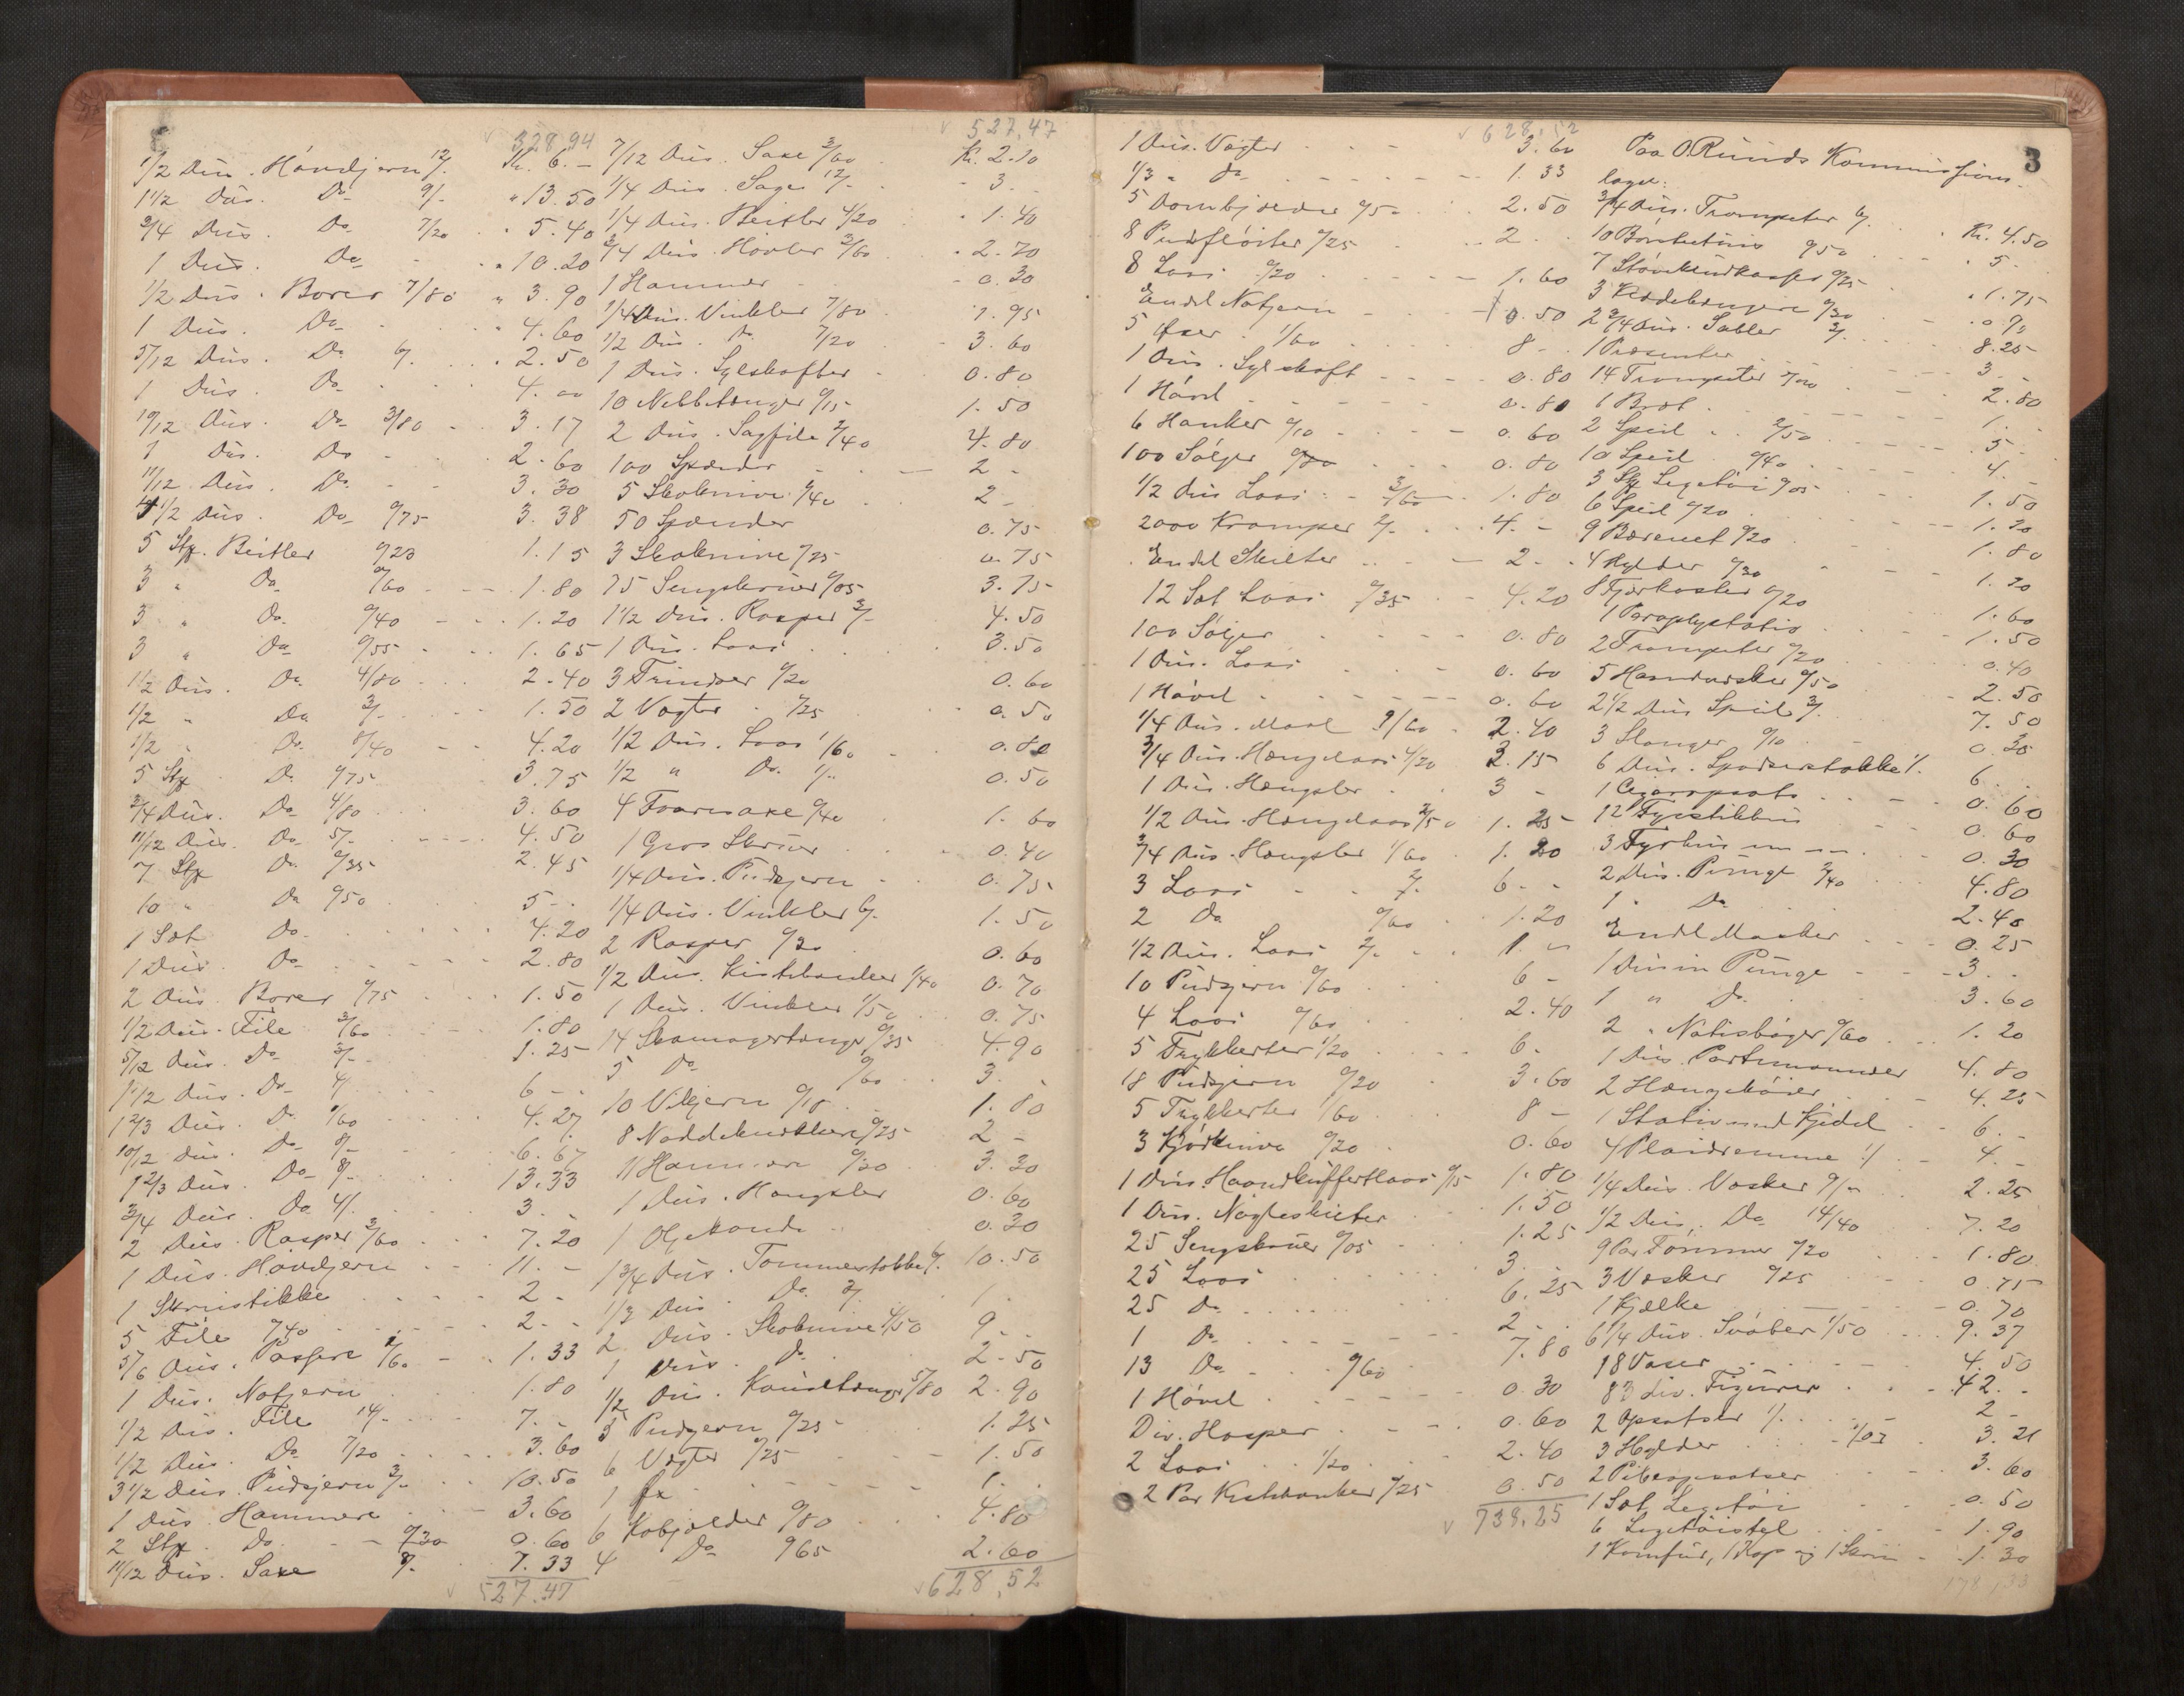 328,94
1/2 Dus. Hövdjern 12/. Kr. 6. -
1 1/2 Dus. Do 9/- " 13.50
3/4 Dus. Do 7/20 " 5.40
1 Dus. Do - " 10.20
1/2 Dus. Borer 7/80 " 3.90
1 Dus. Do 4.60
5/12 Dus. Do 6/. 2.50
1 Dus. Do 4.00
10/12 Dus. Do 3/80 3.17
1 Dus. Do 2.60
11/12 Dus. Do 3.30
4 1/2 Dus. Do 0/75 3.38
5 Stk. Beitler 0/23 1.15
3 " Do 0/60 1.80
3 " Do 0/40 1.20
3 " Do 0/55 1.65
1/2 Dus. Do 4/80 2.40
1/2 " Do 3/- 1.50
1/2 " Do 8/40 4.20
5 Stk Do 0/75 3.75
3/4 Dus. Do 4/80 3.60
11/12 Dus. Do 5/- 4.50
7 Stk Do 0/35 2.45
10 " Do 0/50 5 -
1 Sæt Do 4.20
1 Dus. Do 2.80
2 Dus. Borer 0/75 1.50
1/2 Dus. File 3/60 1.80
5/12 Dus. Do 3/- 1.25
1 1/2 Dus. Do 4/ 6 -
1 2/3 Dus. Do 4.27
10/12 Dus. Do 8/- 6.67
1 2/3 Dus. Do 8/- 13.33
3/4 Dus. Do 4/. 3. -
2 Dus. Rasper 3/60 7.20
1 Dus. Hövdjern 11. -
1 Skruestikke 2 -
5 File 0/40 2. -
5/6 Dus. Passere 1/60 1.33
1 Dus. Notjern 1.80
1/2 Dus. File 14/- 7. -
1/2 Dus. Do 7/20 3.60
3 1/2 Dus. Pudsjern 3/- 10.50
1 Dus Hammere 3.60
2 Stk. Do 0/30 0.60
11/12 Dus. Saxe 8/- 7.33
527.47
527,47
7/12 Dus. Saxe 3/60 Kr. 2.10
1/4 Dus. Sage 12/- - 3. -
1/4 Dus. Beitler 4/20 " 1.40
3/4 Dus. Hövler 3/60 " 2.70
1 Hammer - 0.30
1/4 Dus. Vinkler 7/80 1.95
1/2 Dus. Do 7/20 3.60
1 Dus. Sylskafter 0.80
10 Nebbetænger 0/15 1.50
2 Dus. Sagfile 2/40 4.80
100 Spænder 2 -
5 Skoknive 0/40 2 -
50 Spænder 0.75
3 Skoknive 0/25 0.75
75 Sengskruer 0/05 3.75
1 1/2 Dus. Rasper 3/- 4.50
1 Dus. Laas 3.50
3 Trindser 0/20 0.60
2 Vægter 0/25 0.50
1/2 Dus. Laas 1/60 0.80
1/2 " Do 1/- 0.50
4 Faaresaxe 0/40 1.60
1 Gros Skruer 0.40
1/4 Dus. Pudsjern 0.75
1/4 Dus. Vinkler 6/- 1.50
2 Rasper 0/30 0.60
1/2 Dus. Kistehanker 1/40 0.70
1 Dus. Vinkler 1/50 0.75
14 Skomagertænger 0/35 4.90
5 Do 0/60 3. -
10 0/18 1.80
8 Nøddeknækkere 0/25 2 -
11 Hammere 0/30 3.30
1 Dus. Hængsler 0.60
1 Oljekande 0.30
1 3/4 Dus. Tommestokke 6/. 10.50
1/3 Dus. Do 3/. 1. -
2 Dus. Skoknive 4/50 9 -
1 Dus. Do 2.50
1/2 Dus. 5/80 2.90
5 Pudsjern 0/25 1.25
6 Vægter 0/25 1.50
1 Øx 1. -
6 Kobjælder 0/80 4.80
4 Do 0/65 2.60
628,52
628,52
1 Dus. Vægter 3.60
1/3 " do 1.33
5 Dombjælder 0/50 2.50
8 Pudsfløiter 0/25 2 -
8 Laas 0/20 1.60
Endel Notjern 0.50
5 Øxer 1/60 8 -
1 Dus. Sylskaft 0.80
1 Hövl 0.80
6 Hanker 0/10 0.60
100 Sølger 0.80
1/2 Dus Laas 3/60 1.80
2000 Kramper 2/- 4. -
Endel Skilter 2 -
12 Sæt Laas 0/35 4.20
100 Sølger 0.80
1 Dus. Laas 0.60
1 Hövel 0.60
1/4 Dus. Maal 9/60 2.40
3/4 Dus. Hængelaas 4/20 3.15
1 Dus. Hængsler 3 -
1/2 Dus. Hængelaas 2/50 1.25
3/4 Dus. Hængsler 1/60 1.20
3 Laas 2/. 6 -
2 Do 0/60 1.20
1/2 Dus. Laas 2/- 1. -
10 Pudsjern 0/60 6 -
4 Laas 0/60 2.40
5 1/20 6 -
18 Pudsjern 0/20 3.60
5 1/60 8 -
3 Kjødknive 0/20 0.60
1 Dus. Haandkuffertlaas 0/15 1.80
1 Dus. Nøgleskilter 1.50
25 Sengskruer 0/05 1.25
25 Laas 3. -
25 Do 6.25
1 Do 2 -
13 Do 0/60 7.80
1 Hövel 0.30
Div. Hasper 0.60
2 Laas 1/20 2.40
2 Par Kistehanker 0/25 0.50
738.25
3
Paa O. Runds Kommissions-
lager:
3/4 Dus. Trompeter 6/. Kr. 4.50
10 0/50 " 5 -
7 0/25 " 1.75
3 0/30 " 0.90
2 3/4 Dus. Sabler 3/. 8.25
1 Præsenter 3 -
14 Trompeter 0/20 2.80
1 Bræt 1. -
2 Speil 2/50 5 -
10 Speil 0/40 4. -
3 Stk Legetøi 1.50
6 Speil 0/20 1.20
9 Bærenet 0/20 1.80
4 Hylder 0/30 1.20
8 Fjærkoster 0/20 1.60
1 Paraplystativ 1.50
2 Trompeter 0/20 0.40
5 Haandvæsker 0/50 2.50
2 1/2 Dus Speil 3/. 7.50
3 Slanger 0/10 0.30
6 Dus. Spadserstokke 1/. 6. -
1 Cigaropsats 0.60
12 Fyrstikhus 0.60
3 Fyrhus 0.30
2 Dus. Punge 2/40 4.80
1 " Do 2.40
Endel Masker 0.25
1 Dusin Punge 3. -
1 " Do 3.60
2 " Notisbøger 0/60 1.20
1 Dus. Portemonnæer 4.80
2 Hængekøier 4.25
1 Stativ med Kjedel 6. -
4 Plaidremme 1/ 4. -
1/4 Dus. Vasker 9/- 2.25
1/2 Dus. Do 14/40 7.20
9 Par Tømmer 0/20 1.80
3 Vesker 0/25 0.75
1 Kjælke 0.70
6 1/4 Dus. Svøber 1/50 9.37
18 Vaser 4.50
83 div. Figurer 42. -
2 Opsatser 1/. 2 -
3 Hylder 1/07 3.21
2 Pibeopsatser 3.60
1 Sæt Legetøi 0.50
6 Legetøistøl 1.90
1 Komfur, 1 Kop og 1 Skrin 1.30
178,33